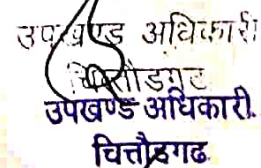 उपखण्ड अधिकारी
चित्तौडगढ
उपखण्ड अधिकारी.
चित्तौड़गढ़